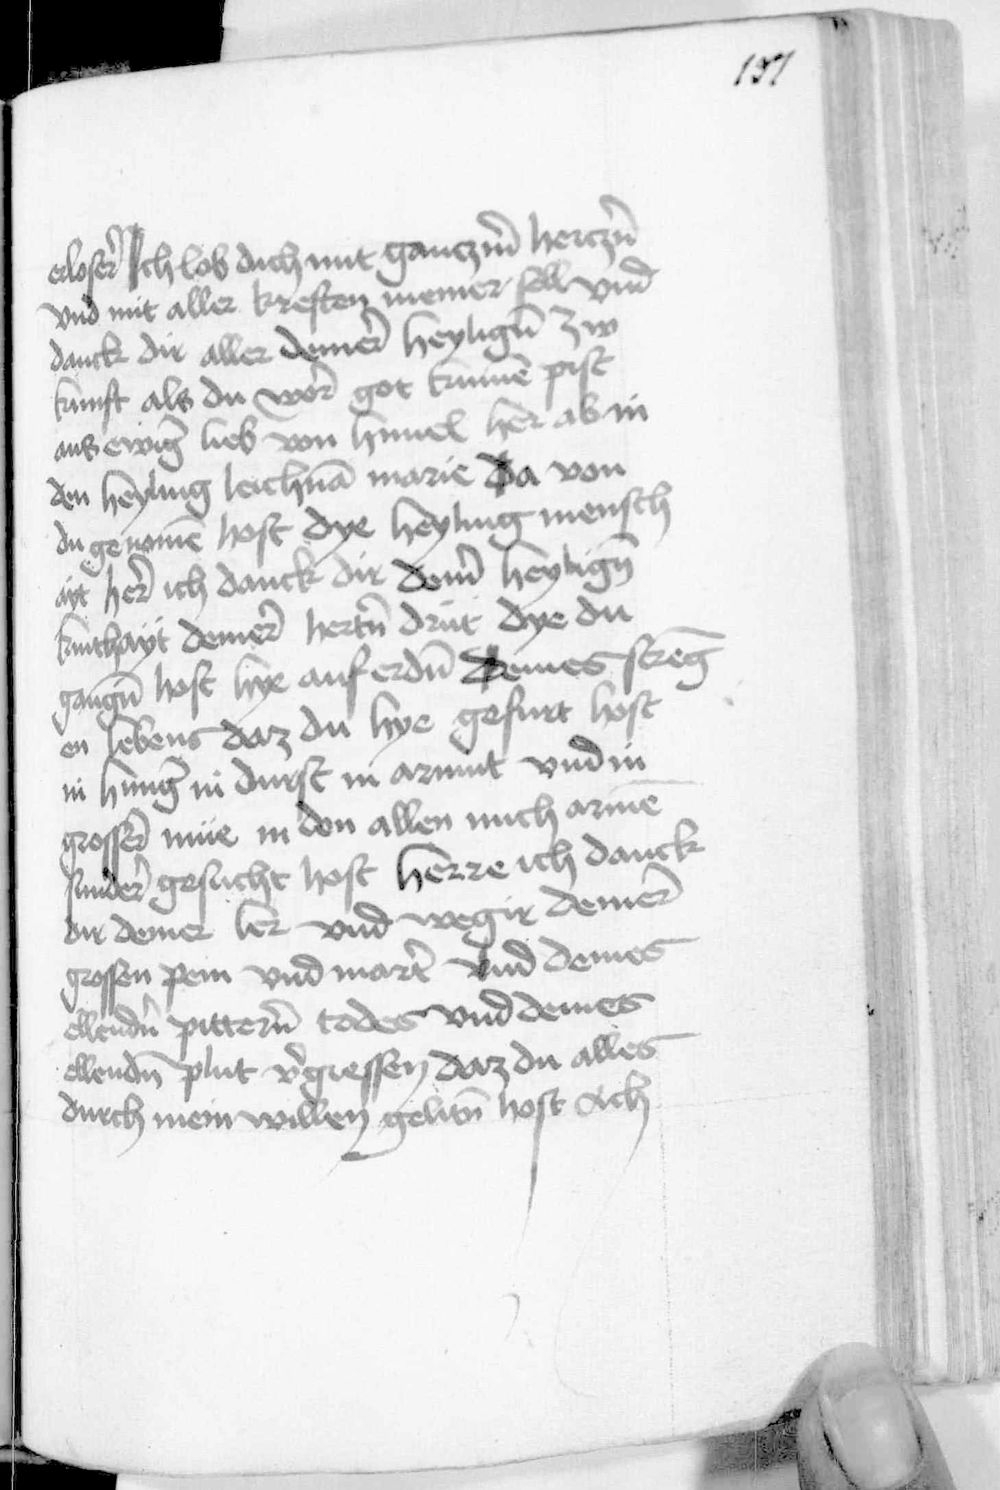 131
erloser̃ Ich lob dich mit gancz m̃ hercz n̄
vnd mit aller kreften meiner sell vnd
danck dir aller deiner̃ heylign̄ zw
kunft als du wor̃ got kumē pist
aus ewig̃ lieb von himel her ab in
den heyling leichnā marie Da von
du genomē host dye heyling mensch
ayt her̃ ich danck dir dein̄ heylign̄
kinthayt deiner̃ hertn̄ drit dye du
gangn̄ host hye auf erdn̄ deines strenḡ
en lebens daz du hye gefurt host
in hung̃ in durst in armut vnd in
grosser̃ müe in den allen mich armē
sunder̃ gesucht host herre ich danck
dir deiner ler vnd wegir deiner̃
grossen pein vnd mart̃ vnd deines
ellendn̄ pittern̄ todes vnd deines
ellendn̄ plut ṽgiessen daz du alles
durch mein willen gelitn̄ host Ach